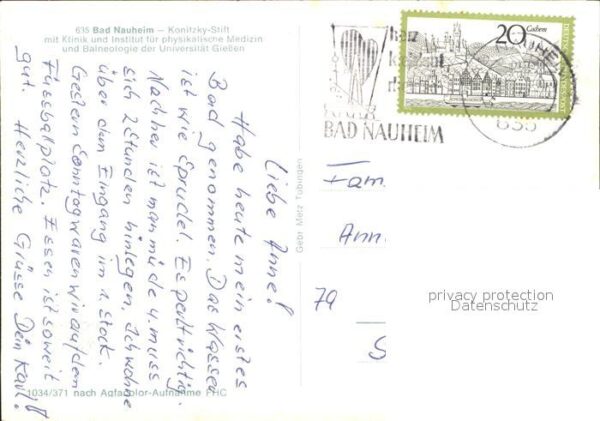 635 Bad Nauheim – Konitzky-Stift
mit Klinik und Institut für physikalische Medizin
und Balneologie der Universität Gießen
Liebe Anne!
Habe heute mein erstes
Bad genommen. Das Wasser
ist wie Sprudel. Es perlt richtig.
Nachher ist man müde u. muss
sich 2 Stunden hinlegen. Ich wohne
über dem Eingang im 1. Stock.
Gestern Sonntag waren wir auf dem
Fussballplatz. Essen ist soweit
gut. Herzliche Grüsse Dein Karl!
1034/371 nach Agfacolor-Aufnahme FHC
Gebr. Metz Tübingen
20 Cuhem
herz
BAD NAUHEIM
635
Fam.
Ann
79
S
privacy protection
Datenschutz